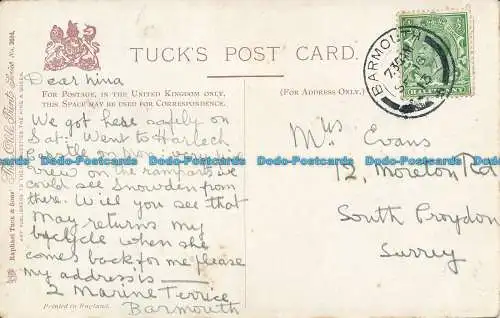 TUCK'S POST CARD.
FOR POSTAGE, IN THE UNITED KINGDOM ONLY,
THIS SPACE MAY BE USED FOR CORRESPONDENCE.
(FOR ADDRESS ONLY.)
Dear Nina
We got here safely on
Sat: Went to Harlech
Castle on Mon
view on the ramparts we
could see Snowden from
there. Will you see that
May returns my
bicycle when she
comes back for me please
my address is
2 Marine Terrice
Barmouth
Mrs Evans
12, Moreton Rd
South Croydon
Surrey
BARMOUTH
HALFPENNY
Raphael Tuck & Sons'
Printed in England.
Dodo-Postcards Dodo-Postcards Dodo-Postcards Dodo-Postcards Dodo-Postcards Dodo-Postcards